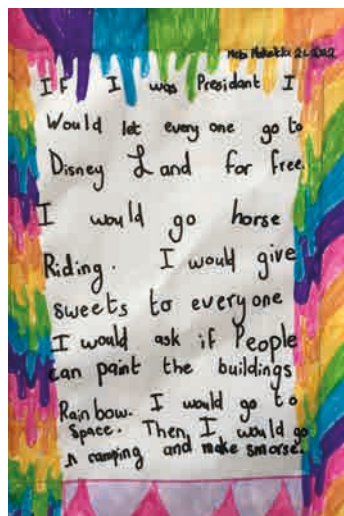 If I was Presidant I
Would let every one go to
Disney Land for free.
I would go horse
Riding. I would give
sweets to every one
I would ask if People
can paint the buildings
Rainbow. I would go to
Space. Then I would go
camping and make smorse.